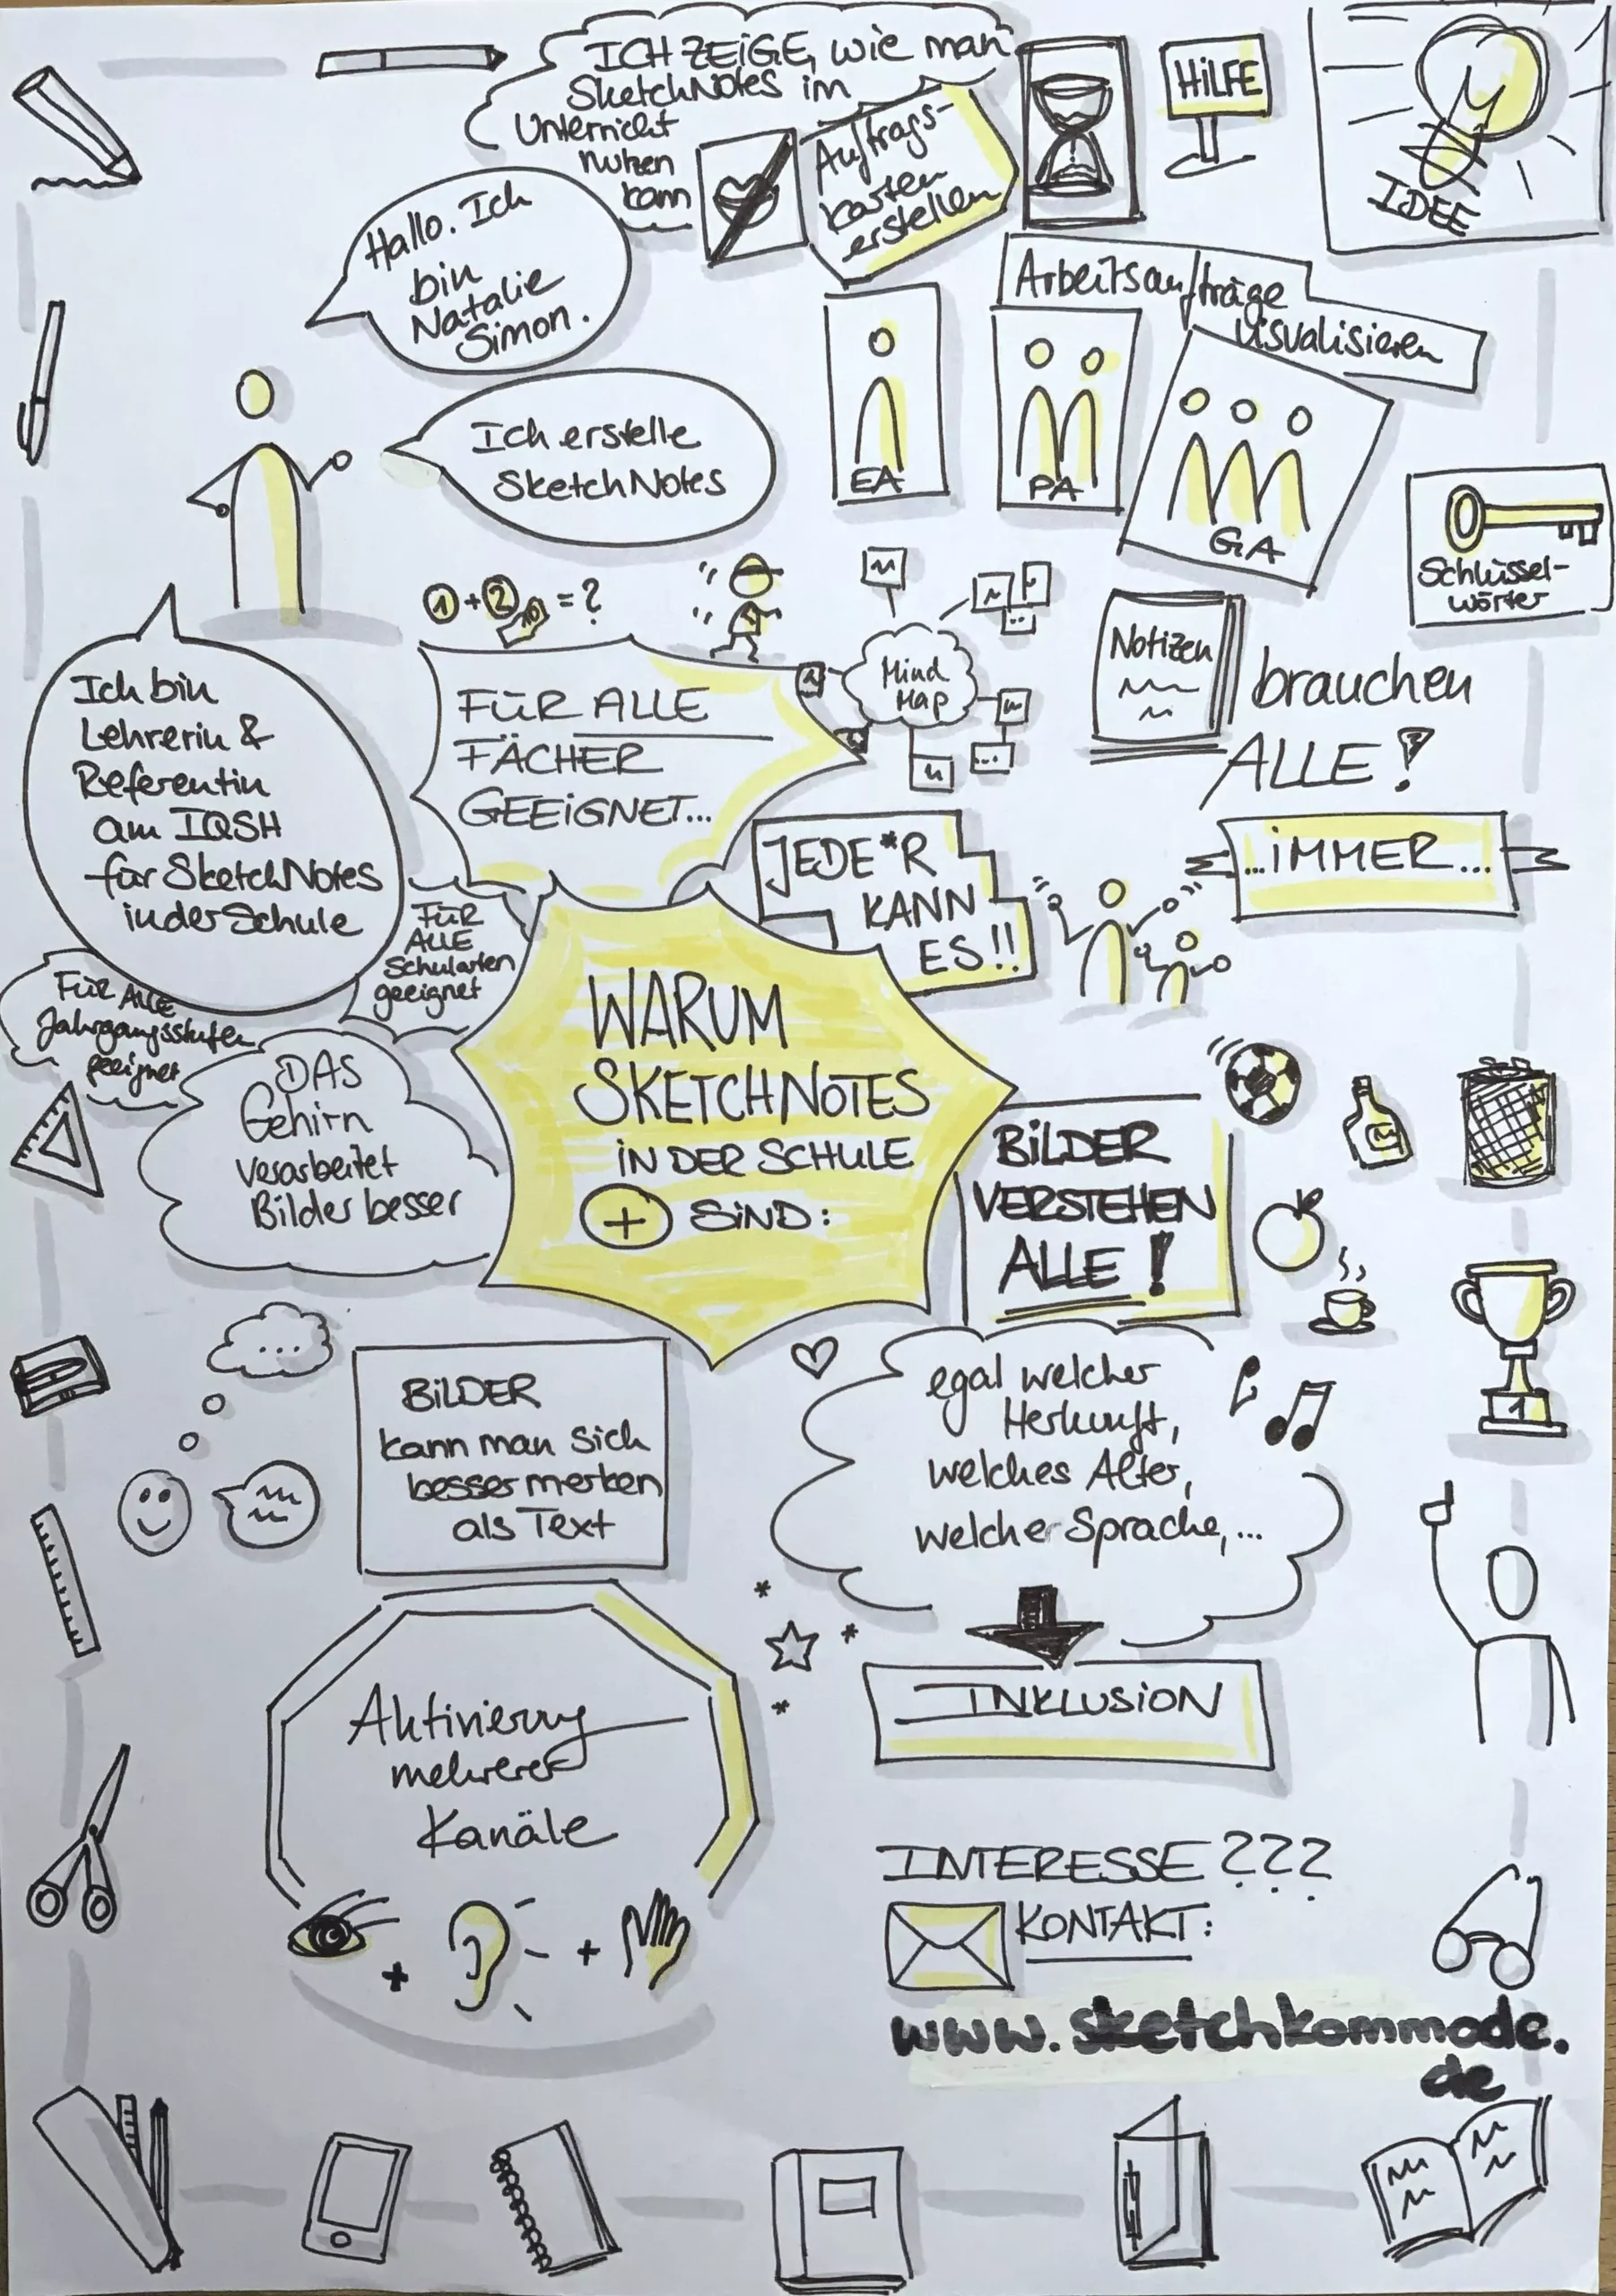 ICH ZEIGE, wie man
SketchNotes im
Unterricht
nutzen
kann
Auftrags-
karten
erstellen
HILFE
IDEE
Hallo. Ich
bin
Natalie
Simon.
Arbeitsaufträge
visualisieren
EA
PA
GA
Ich erstelle
SketchNotes
Schlüssel-
wörter
1 + 2 = ?
Ich bin
Lehrerin &
Referentin
am IQSH
für SketchNotes
in der Schule
FÜR ALLE
FÄCHER
GEEIGNET...
Mind
Map
Notizen
brauchen
ALLE!
...IMMER...
JEDE*R
KANN
ES!!
FÜR
ALLE
Schularten
geeignet
FÜR ALLE
Jahrgangsstufen
geeignet
DAS
Gehirn
verarbeitet
Bilder besser
WARUM
SKETCHNOTES
IN DER SCHULE
+ SIND:
BILDER
VERSTEHEN
ALLE!
1
BILDER
kann man sich
besser merken
als Text
egal welcher
Herkunft,
welches Alter,
welche Sprache,...
INKLUSION
Aktivierung
mehrerer
Kanäle
+ +
INTERESSE???
KONTAKT:
www.sketchkommode.
de